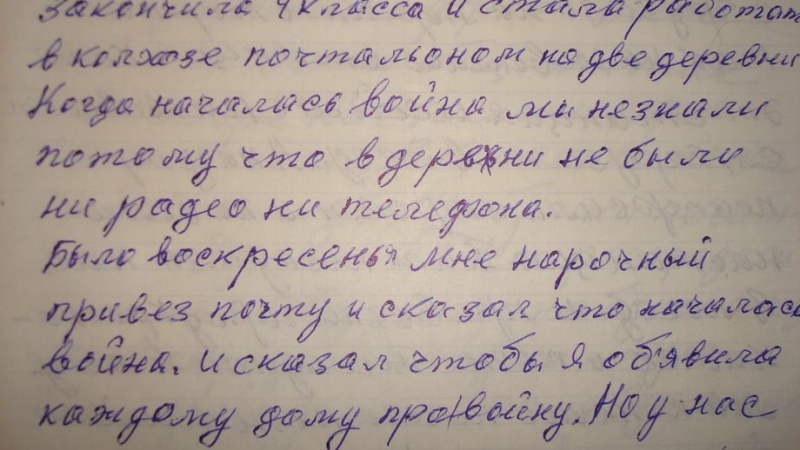 закончила 4 класса и стала работат
в колхозе почтальоном на две деревни
Когда началась война ми незнали
потому что в деревни не было
ни радео ни телефона.
Было воскресенья мне нарочный
привез почту и сказал что началась
война. И сказал чтобы я обявила
каждому дому про войну. Но у нас